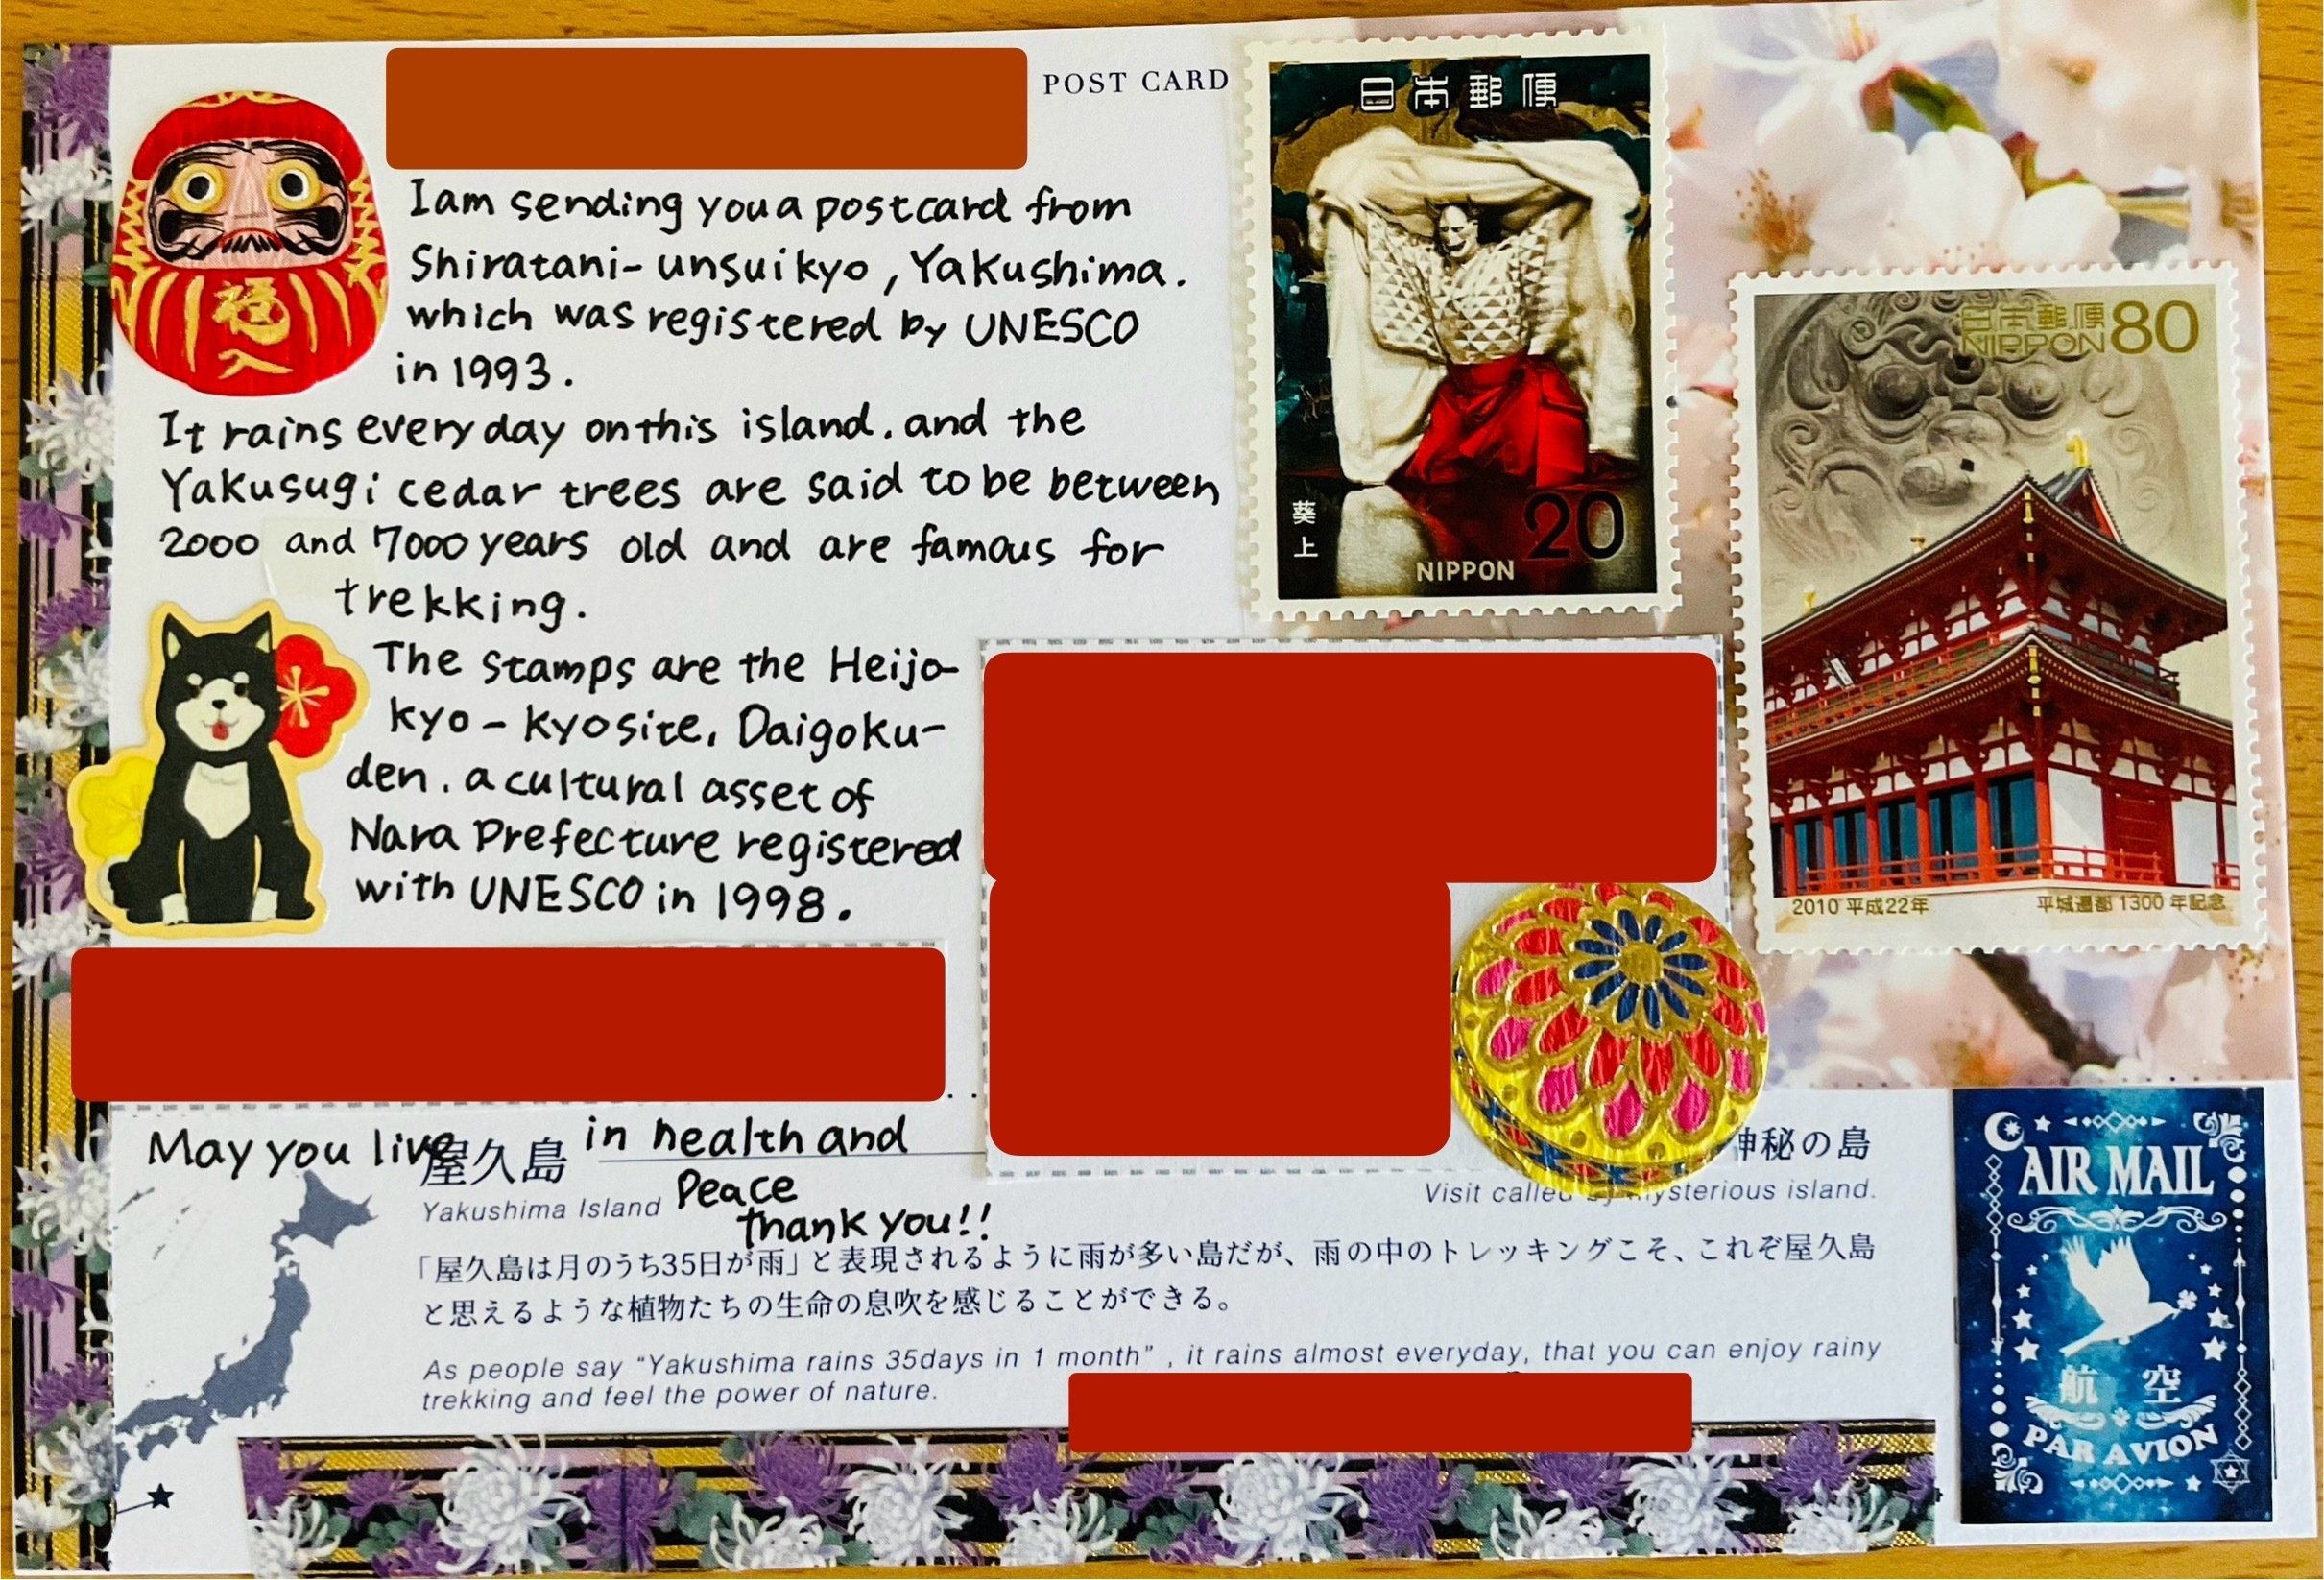 POST CARD
I am sending you a postcard from
Shiratani-unsuikyo, Yakushima.
which was registered by UNESCO
in 1993.
It rains every day on this island. and the
Yakusugi cedar trees are said to be between
2000 and 7000 years old and are famous for
trekking.
The stamps are the Heijo-
kyo-kyosite, Daigoku-
den. a cultural asset of
Nara Prefecture registered
with UNESCO in 1998.
May you live in health and
Peace
thank you!!
福入
日本郵便
葵上
20
NIPPON
日本郵便
NIPPON 80
2010 平成22年
平城遷都 1300 年記念
屋久島
神秘の島
Yakushima Island
Visit called by mysterious island.
「屋久島は月のうち35日が雨」と表現されるように雨が多い島だが、雨の中のトレッキングこそ、これぞ屋久島
と思えるような植物たちの生命の息吹を感じることができる。
As people say “Yakushima rains 35days in 1 month” , it rains almost everyday, that you can enjoy rainy
trekking and feel the power of nature.
AIR MAIL
航空
PAR AVION